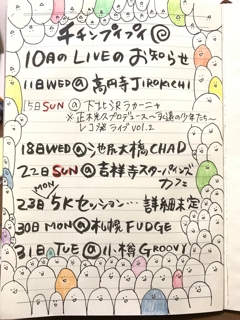 チチンプイプイ
10月のLIVEのお知らせ
11日WED@高円寺JIROKICHI
15日SUN@下北沢ラカーニャ
※正木光久プロデュース〜永遠の少年たち〜
レコ発ライブVOL.2
18日WED@池尻大橋CHAD
22日SUN@吉祥寺スターパインズ
カフェ
23日MON 5Kセッション…詳細未定
30日MON@札幌FUDGE
31日TUE@小樽GROOVY